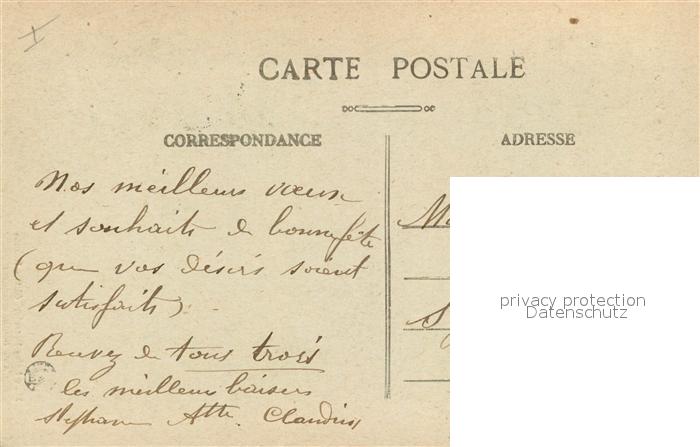 CARTE POSTALE
CORRESPONDANCE
ADRESSE
Nos meilleurs vœux
et souhaits de bonne fête
(que vos désirs soient
satisfaits)
Recevez de tous trois
les meilleurs baisers
Stephane Claudius
privacy protection
Datenschutz